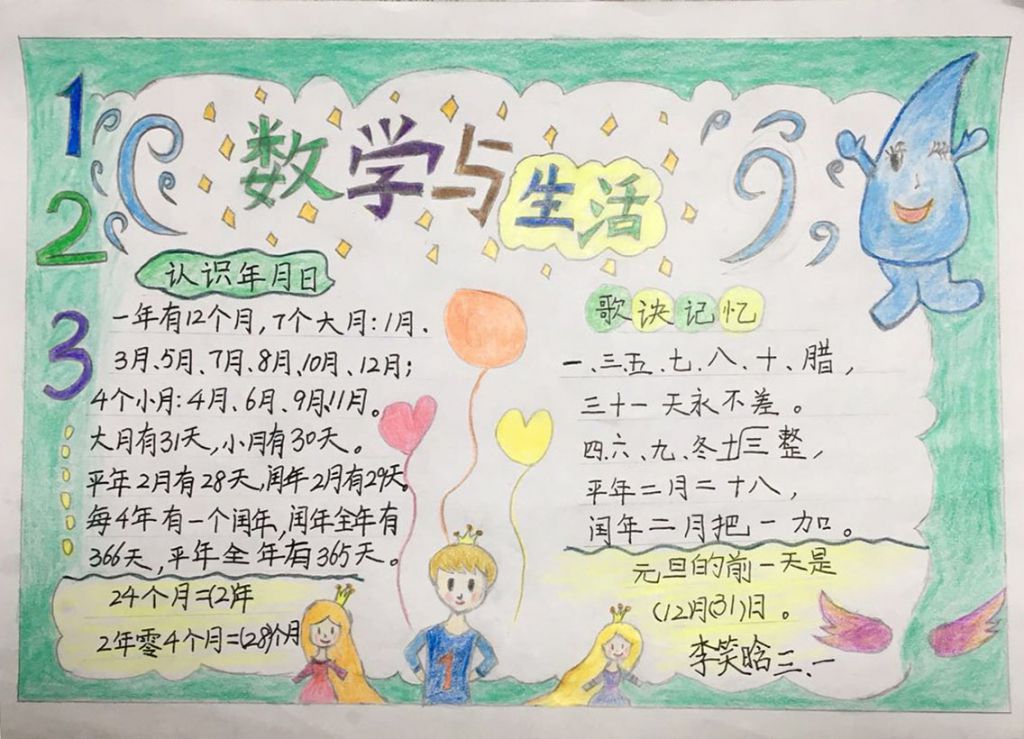 1
2
3
数学与生活
认识年月日
一年有12个月,7个大月:1月、
3月、5月、7月、8月、10月、12月;
4个小月:4月、6月、9月、11月。
大月有31天,小月有30天。
平年2月有28天,闰年2月有29天,
每4年有一个闰年,闰年全年有
366天,平年全年有365天。
24个月=(2)年
2年零4个月=(28)个月
歌诀记忆
一、三、五、七、八、十、腊,
三十一天永不差。
四、六、九、冬三十整,
平年二月二十八,
闰年二月把一加。
元旦的前一天是
(12月(31)日。
李笑晗三、一
1